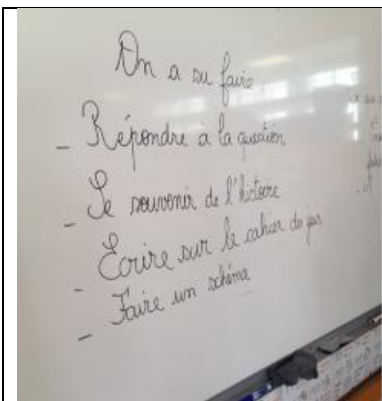 On a su faire
- Répondre à la question
- Se souvenir de l'histoire
- Écrire sur le cahier de
- Faire un schéma